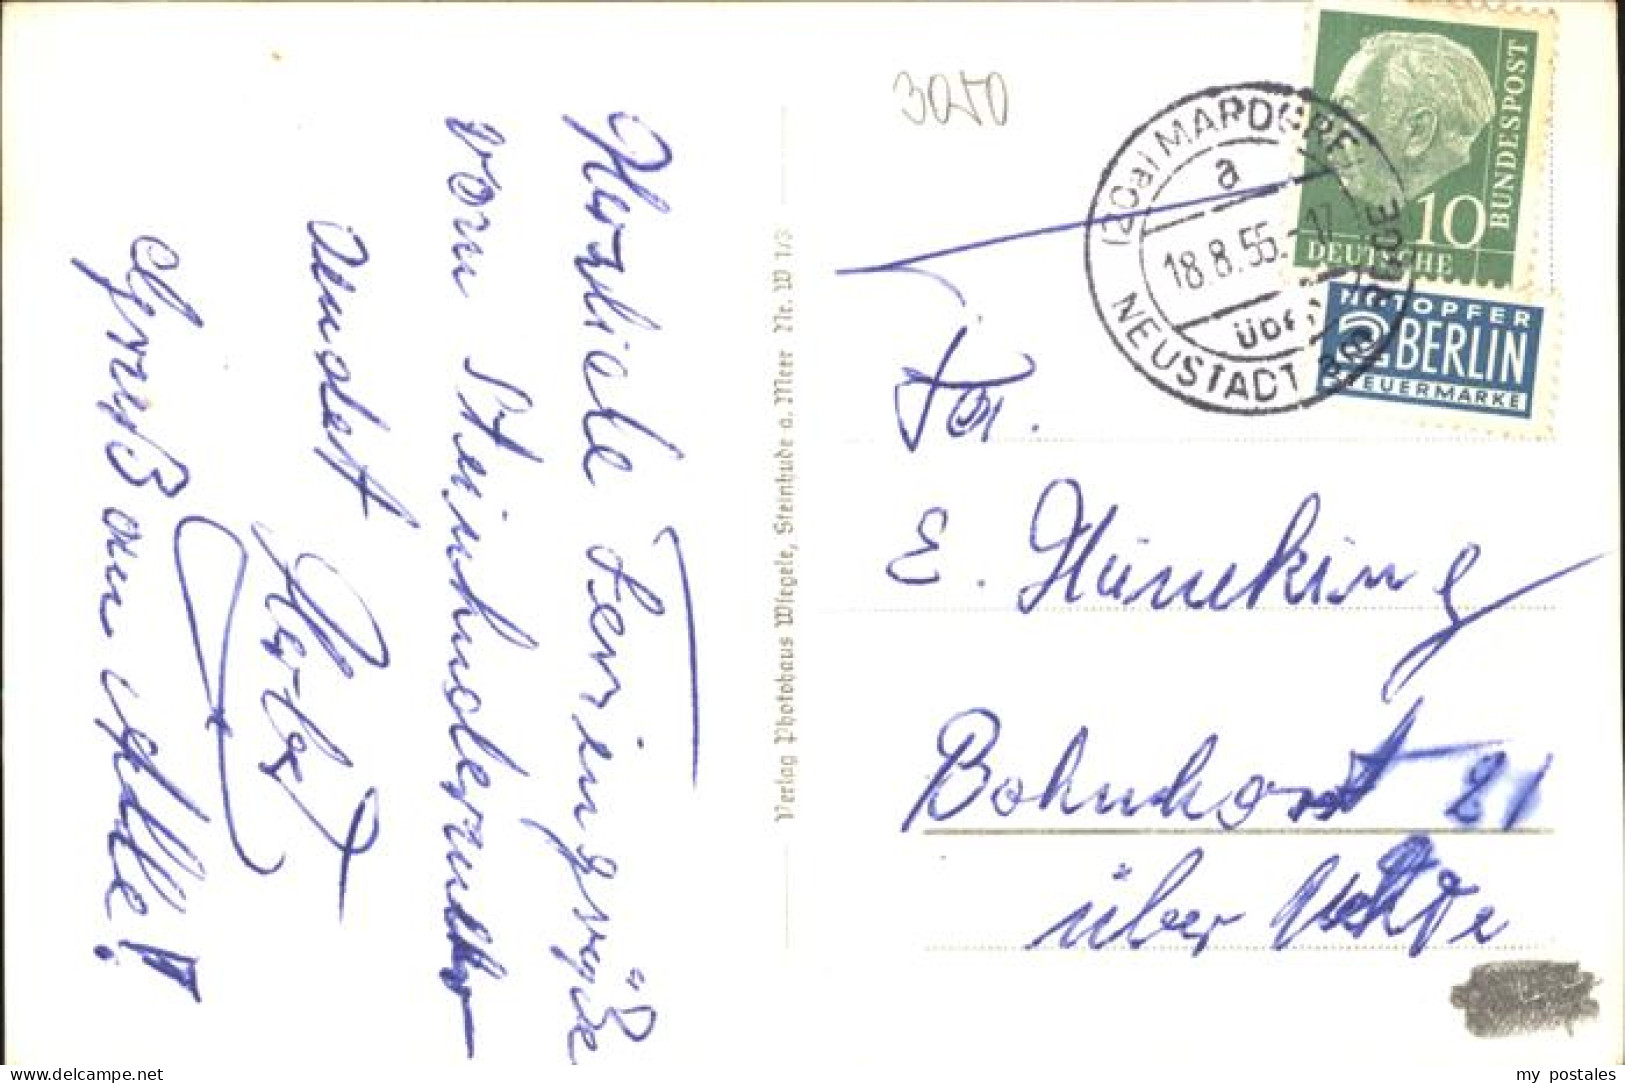 3050
Herzliche Feriengrüße
vom Steinhuder
sendet
Herbert
Gruß an Alle!
Verlag Photohaus Wiegele, Steinhude a. Meer Nr. W 173
(20a) MARDORF
a
18.8.55.-17
über
NEUSTADT am RBGE
10
DEUTSCHE
BUNDESPOST
NOTOPFER
2 BERLIN
STEUERMARKE
Fa.
E. Hüneking
Bohnhorst 21
über
e-mcoll.com
my postales